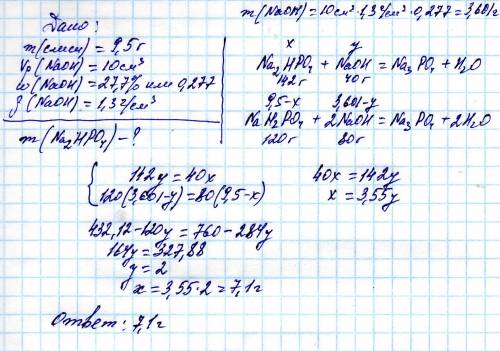 Дано:
m(смеси) = 9,5 г
Vр (NaOH) = 10 см³
ω(NaOH) = 27,7% или 0,277
ρ (NaOH) = 1,3 г/см³
m(Na₂HPO₄) - ?
m(NaOH) = 10 см³·1,3 г/см³·0,277 = 3,601 г
x y
Na₂HPO₄ + NaOH = Na₃PO₄ + H₂O
142г 40г
9,5-x 3,601-y
NaH₂PO₄ + 2NaOH = Na₃PO₄ + 2H₂O
120г 80г
142y = 40x
120(3,601-y) = 80(9,5-x)
40x = 142y
x = 3,55y
432,12-120y = 760 - 284y
164y = 327,88
y = 2
x = 3,55·2 = 7,1 г
Ответ: 7,1 г